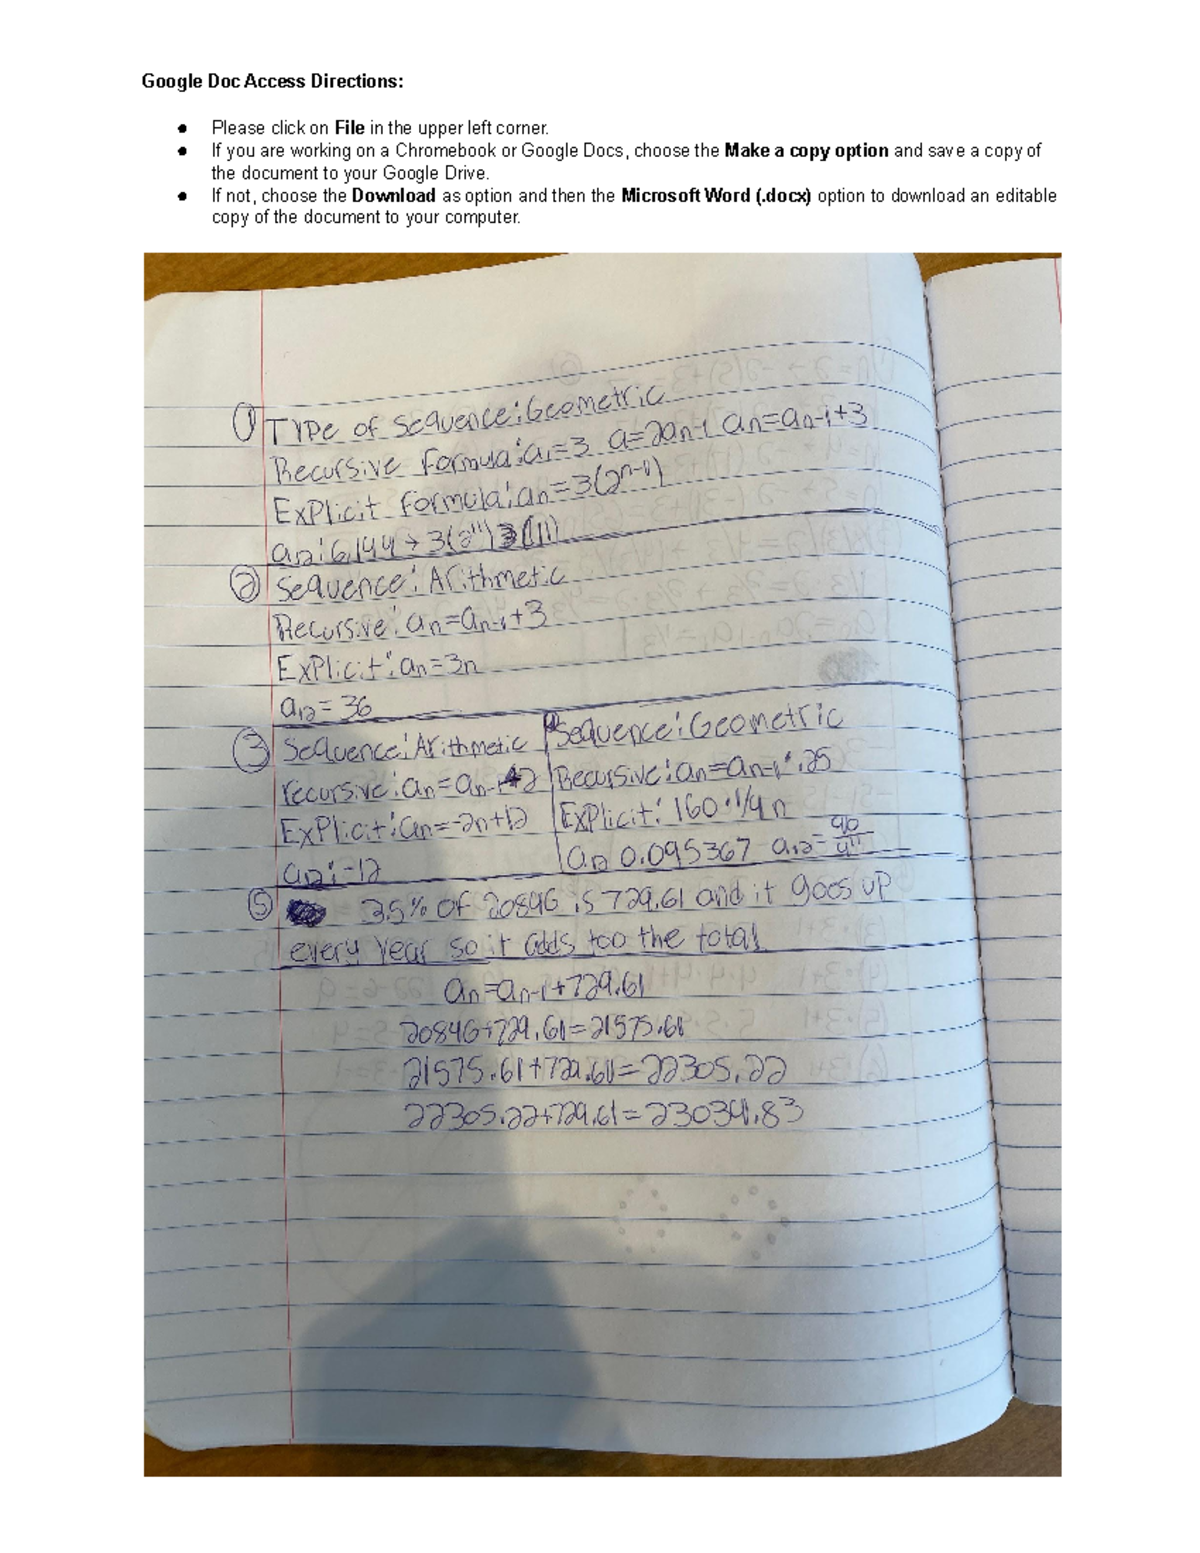 Google Doc Access Directions:
● Please click on File in the upper left corner.
● If you are working on a Chromebook or Google Docs, choose the Make a copy option and save a copy of
the document to your Google Drive.
● If not, choose the Download as option and then the Microsoft Word (.docx) option to download an editable
copy of the document to your computer.
① Type of sequence: Geometric
Recursive formula: a₁=3 a=2an-1 an=an-1+3
Explicit formula: an=3(2ⁿ⁻¹)
a12: 6,144 → 3(2¹¹) (11)
② Sequence: Arithmetic
Recursive: an=an-1+3
Explicit: an=3n
a12=36
③ Sequence: Arithmetic
recursive: an=an-1-2
Explicit: an=-2n+12
a12: -12
Sequence: Geometric
Recursive: an=an-1·.25
Explicit: 160·1/4n
a12 0.095367 a12=
⑤ 3.5% of 20846 is 729.61 and it goes up
every year so it adds too the total
an=an-1+729.61
20846+729.61=21575.61
21575.61+729.61=22305.22
22305.22+729.61=23034.83